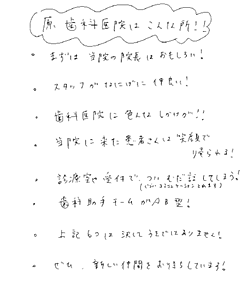 原歯科医院はこんな所!!
・まずは当院の院長はおもしろい!
・スタッフがなにげに仲良い!
・歯科医院に色んなしかけが!!
・当院に来た患者さんは笑顔で
帰られる!
・診療室や受付で、ついむだ話してしまう!
(いいコミュニケーションとれます)
・歯科助手チームがAB型!
・上記6つは決してうそではありません!
・ぜひ、新しい仲間をおまちしています!